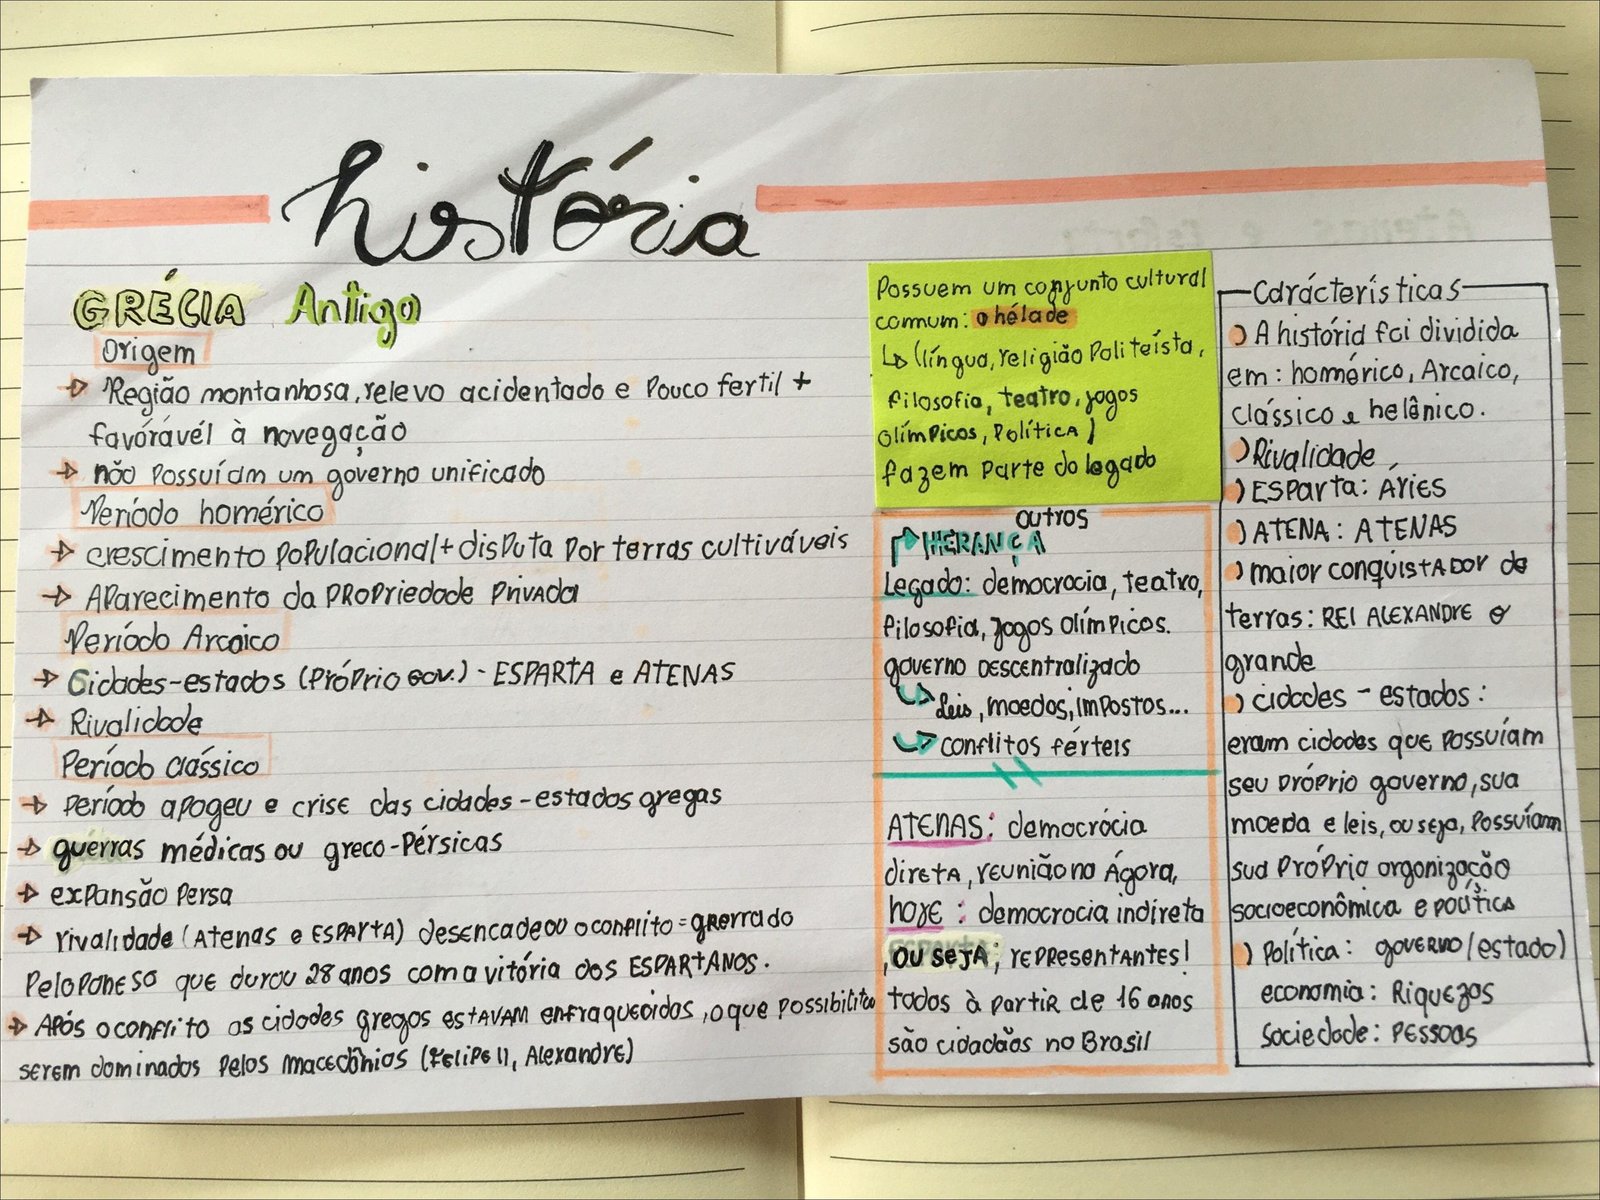 história
GRÉCIA Antiga
Origem
Região montanhosa, relevo acidentado e pouco fertil +
favóravél à navegação
não possuíam um governo unificado
Período homérico
crescimento populacional + disputa por terras cultiváveis
Aparecimento da propriedade privada
Período Arcaico
Cidades-estados (próprio gov.) - ESPARTA e ATENAS
Rivalidade
Período Clássico
período apogeu e crise das cidades-estados gregas
guerras médicas ou greco-Pérsicas
expansão Persa
rivalidade (Atenas e ESPARTA) desencadeou o conflito =
Peloponeso que durou 28 anos com a vitória dos ESPARTANOS.
Após o conflito as cidades gregas estavam enfraquecidas, o que possibilitou
serem dominados pelos macedônios (Felipe II, Alexandre)
Possuem um conjunto cultural
comum: a hélade
(língua, religião Politeísta,
filosofia, teatro, jogos
olímpicos, política)
fazem parte do legado
outros
HERANÇA
Legado: democracia, teatro,
filosofia, jogos olímpicos.
governo descentralizado
Leis, moedas, impostos...
conflitos férteis
ATENAS: democrácia
direta, reunião na Ágora,
hoje: democracia indireta
, ou seja, representantes!
todos à partir de 16 anos
são cidadãos no Brasil
Carácterísticas
A história foi dividida
em: homérico, Arcaico,
clássico e helênico.
Rivalidade
ESParta: Aries
ATENA: ATENAS
maior conquistador de
terras: REI ALEXANDRE o
grande
cidades - estados:
eram cidades que possuíam
seu próprio governo, sua
moeda e leis, ou seja, possuíam
sua próprio organização
socioeconômica e política
Política: governo (estado)
economia: Riquezas
Sociedade: PESSOAS